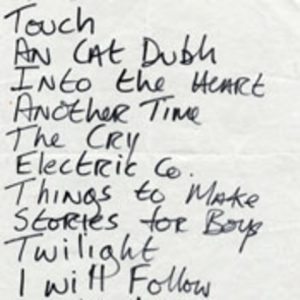 Touch
AN CAT Dubh
INto the HEART
ANother Time
The Cry
Electric Co.
Things to Make
Stories for Boys
Twilight
I will Follow